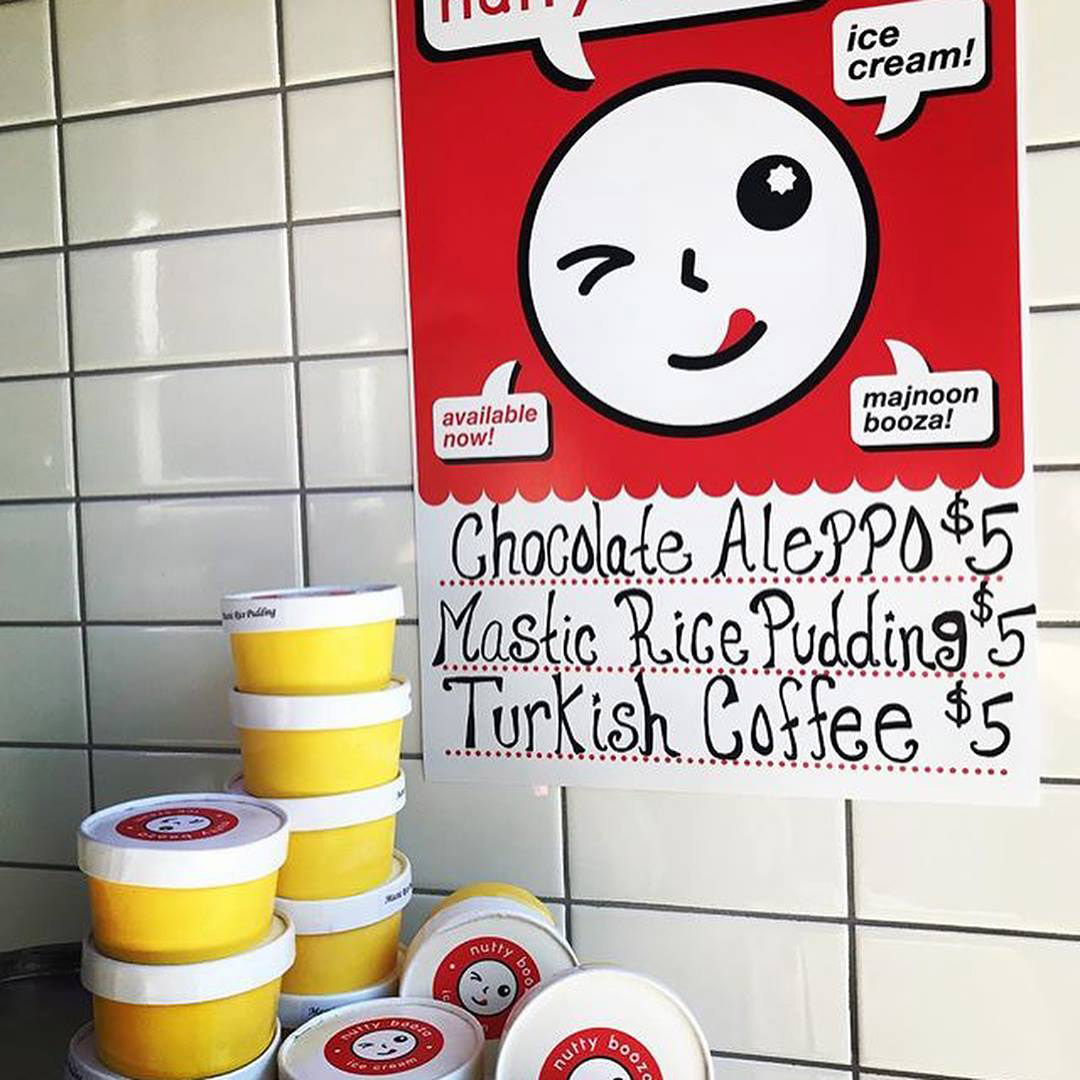 nutty
ice
cream!
available
now!
majnoon
booza!
Chocolate AlePPO $5
Mastic Rice Pudding $5
Turkish Coffee $5
Rice Pudding
nutty booza
ice cream
nutty
nutty booza
ice cream
nutty booza